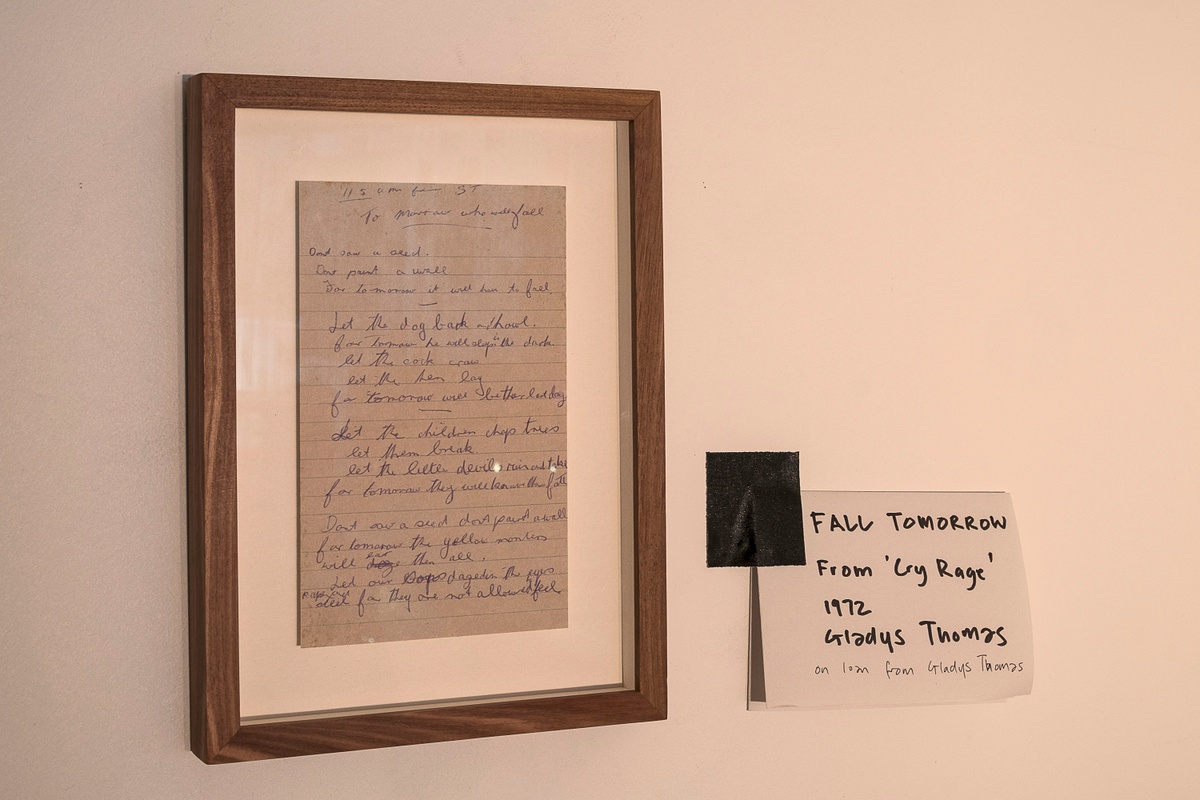 To morrow who will fall
Dont saw a seed.
Dont paint a wall
For tomorrow it will hav to fall.
Let the dog bark howl.
for tomorrow he will the dark
let the cock crow
let the hen lay
for tomorrow will be there last day
Let the children chop trees
let them break
let the little devils ruin and take
for tomorrow they will know their fall
Dont saw a seed dont paint a wall
for tomorrow the yellow monters
will ear them all.
Let our dagedin the eyes
for they are not allowed feel
FALL TOMORROW
From 'Cry Rage'
1972
Gladys Thomas
on loan from Gladys Thomas